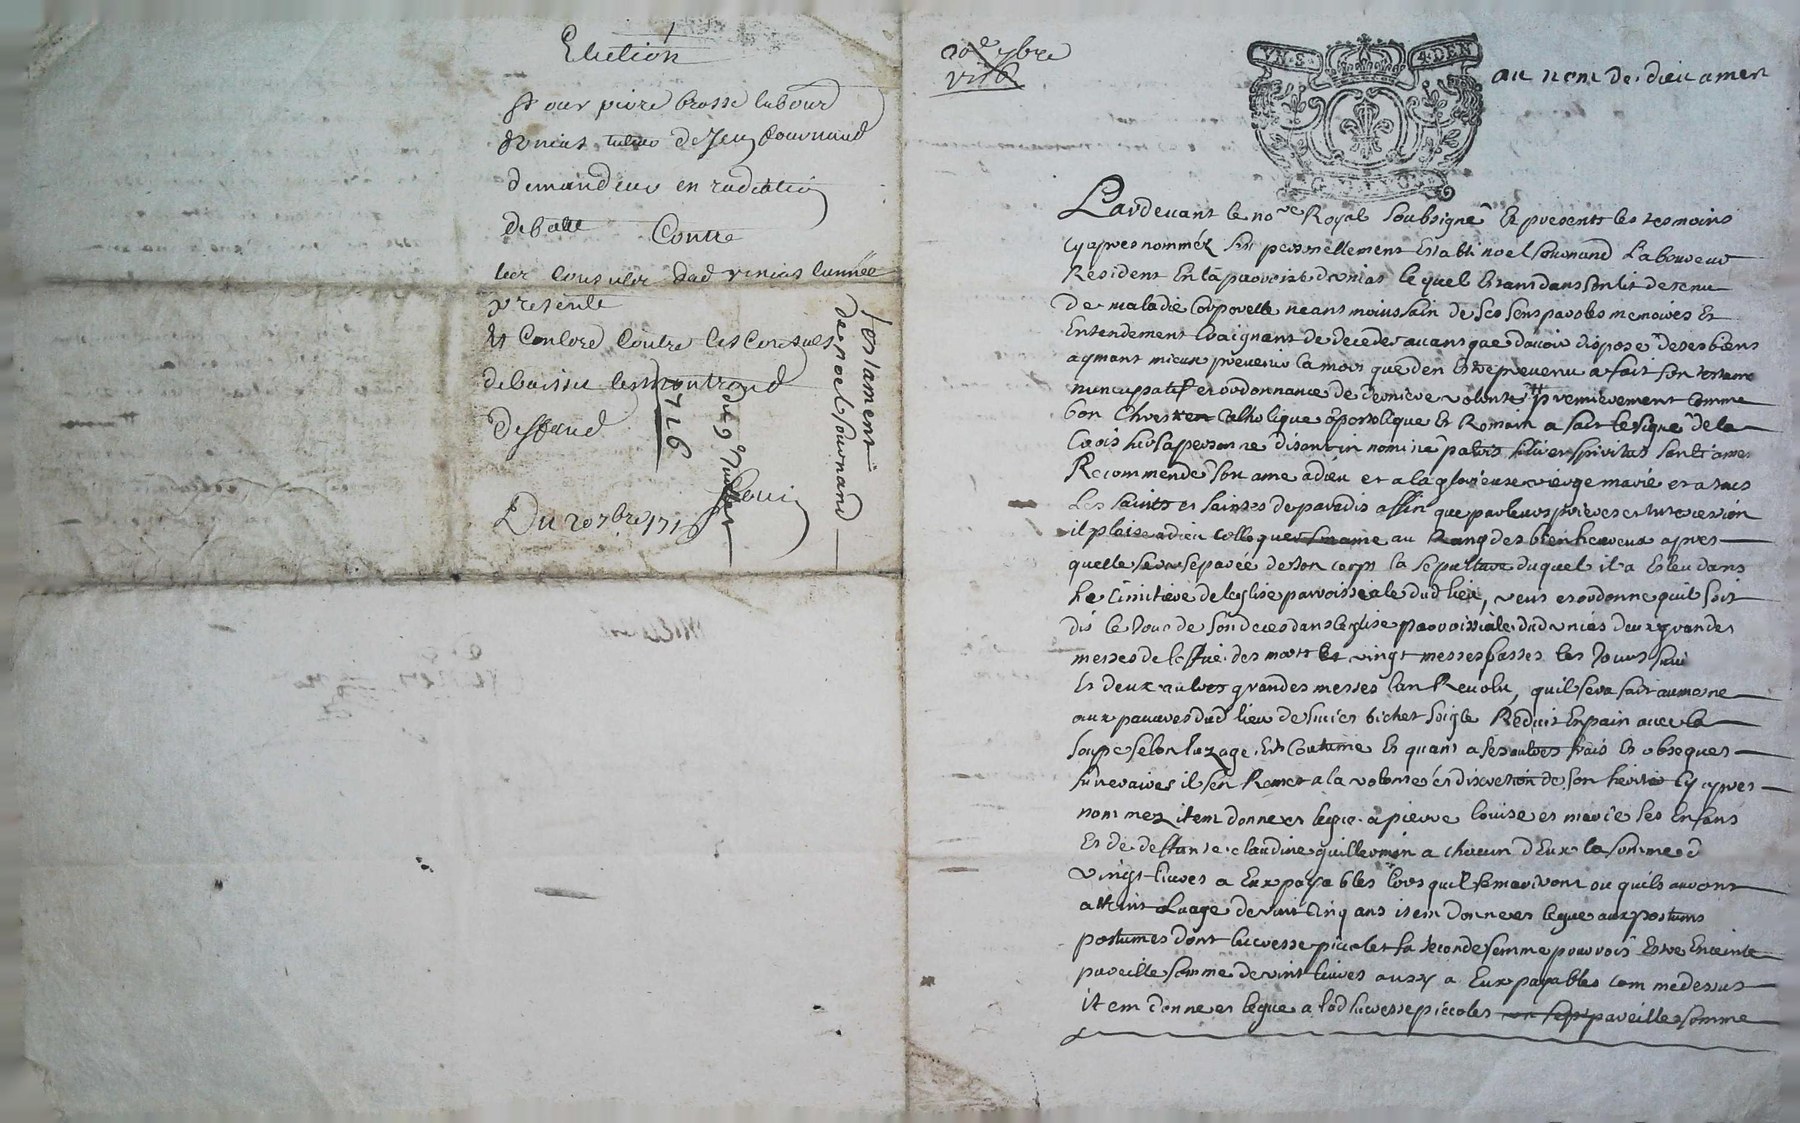 Election
pour pierre brosse labour
d'unias tuteur de Jean Cournand
demandeur en radiation
debatte Contre
les consulz dud unias lannée
presente
Et Encore Contre les Consuls
de boisset les montrond
deffand
Du 20 7bre 171
testament
de noel Cournand
du 9e Juillet
1716
20e 7bre
VN.S. 4.DEN
au nom de dieu amen
Pardevant le nore Royal soubsigné Et presents les tesmoins
cy apres nomméz fut personnellement Establi noel Cournand Laboureur
Resident En la parroisse d'unias lequel Estant dans son lit detenu
de maladie corporelle neantmoins sain de ses sens paroles memoires Et
Entendement Craignant de deceder avant que davoir dispose de ses biens
aymant mieux prevenir la mort que den Estre prevenu a fait son testame
nuncupatif et ordonnance de derniere volonté premierement Comme
bon Chrestien Catholique apostolique Et Romain a fait le signe de la
Croix sur sa personne disant in nomine patris filii et spiritus sancti amen
Recommende son ame a dieu et a la glorieuse vierge marie et a tous
Les saints et saintes de paradis affin que par leurs prieres et intercession
il plaise a dieu colloquer son ame au Rang des bienheureux apres
quelle sera separée de son corps la sepulture duquel il a Esleu dans
Le Cimitiere de leglise parroissiale dud lieu, veut et ordonne quil soit
dit le Jour de son deces dans leglise parroissiale dud unias deux grandes
messes de loffice des morts Et vingt messes basses les Jours suiv
Et deux autres grandes messes lan Revolu, quil sera fait aumosne
aux pauvres dud lieu de six bichet soigle Reduit En pain avec la
soupe selon luzage Et Coutume Et quant a ses autres frais Et obseques
funeraires il sen Remet a la volonté et discretion de son heritier cy apres
nommez item donne et legue a pierre louise et marie ses Enfans
Et de deffunte claudine guillermin a chacun dEux la somme d
vingt livres a Eux payables lors quil se mariront ou quils auront
atteint Laage de vint cinq ans item donne et legue aux postums
postumes dont lucresse piccolet sa seconde femme pourroit Estre Enceinte
pareille somme de vint livres aussy a Eux payables comme dessus
item donne et legue a lad lucresse piccolet pareille somme